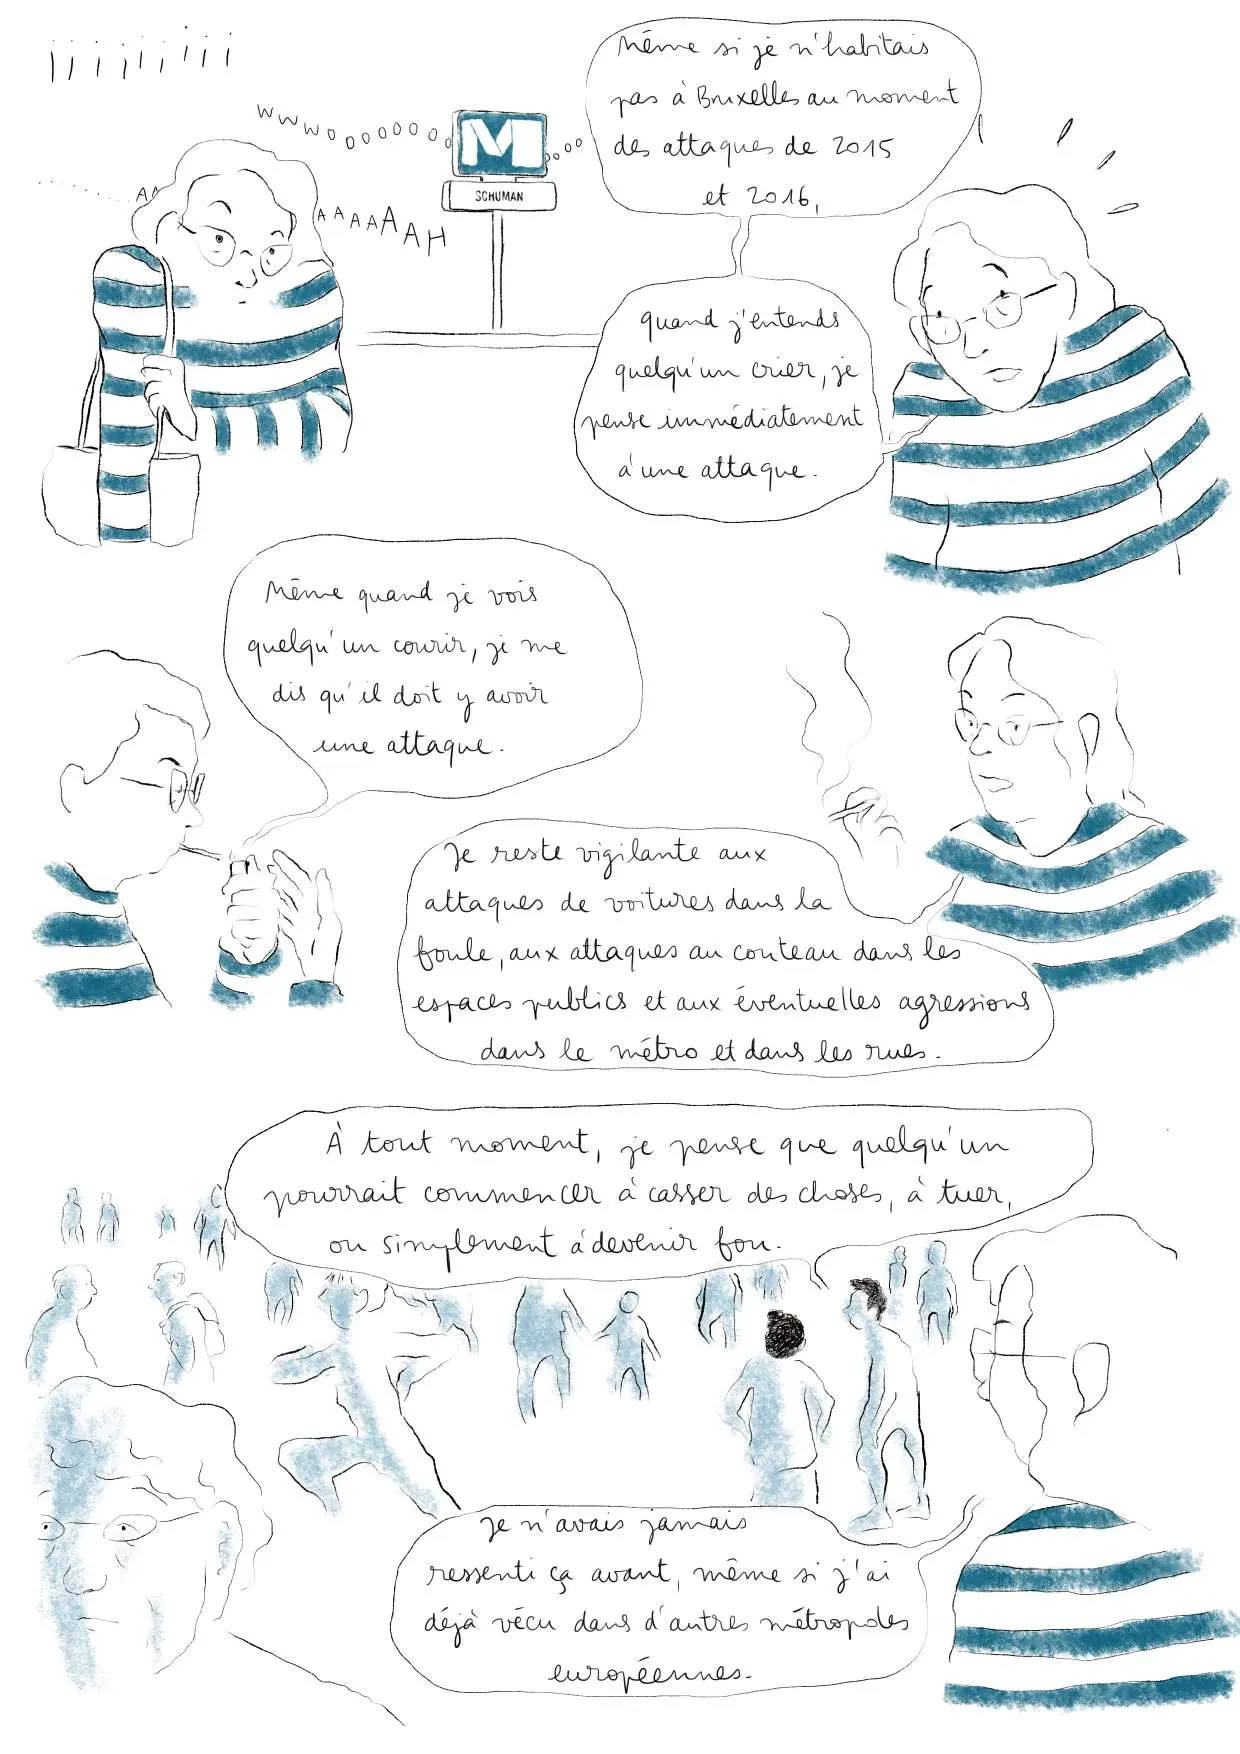 iiiiiiiii
WWWOOOOOOO
M
SCHUMAN
AA
AAAAAAAH
Même si je n'habitais
pas à Bruxelles au moment
des attaques de 2015
et 2016,
quand j'entends
quelqu'un crier, je
pense immédiatement
à une attaque.
Même quand je vois
quelqu'un courir, je me
dis qu'il doit y avoir
une attaque.
Je reste vigilante aux
attaques de voitures dans la
foule, aux attaques au couteau dans les
espaces publics et aux éventuelles agressions
dans le métro et dans les rues.
À tout moment, je pense que quelqu'un
pourrait commencer à casser des choses, à tuer,
ou simplement à devenir fou.
Je n'avais jamais
ressenti ça avant, même si j'ai
déjà vécu dans d'autres métropoles
européennes.